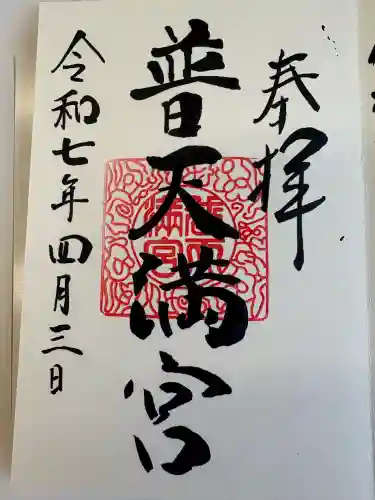 奉拝
普天満宮
令和七年四月三日